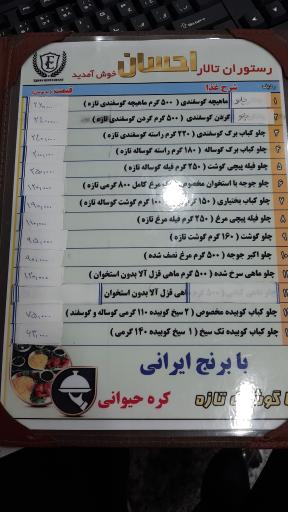 رستوران تالار احسان خوش آمدید
ردیف شرح غذا قیمت
۱ چلو ماهیچه گوسفندی ( ۵۰۰ گرم ماهیچه گوسفندی تازه )
۲ چلو گردن گوسفندی ( ۵۰۰ گرم گردن گوسفندی تازه )
۳ چلو کباب برگ گوسفندی ( ۲۲۰ گرم راسته گوسفندی تازه )
۴ چلو کباب برگ گوساله ( ۱۸۰ گرم راسته گوساله تازه )
۵ چلو فیله پیچی گوشت ( ۲۵۰ گرم فیله گوساله تازه )
۶ چلو جوجه با استخوان مخصوص مرغ کامل ۸۰۰ گرمی تازه ) ۱۲۰/۰۰۰
۷ چلو کباب بختیاری ( ۱۵۰ ۱۰۰ گرم گوشت گوساله تازه ) ۱۹۰/۰۰۰
۸ چلو فیله پیچی مرغ ( ۲۵۰ گرم فیله مرغ تازه )
۹ چلو گوشت ( ۱۶۰ گرم گوشت تازه ) ۹۵/۰۰۰
۱۰ چلو اکبر جوجه ( ۵۰۰ گرم مرغ نصف شده ) ۹۰/۰۰۰
۱۱ چلو ماهی سرخ شده ( ۵۰۰ گرم ماهی قزل آلا بدون استخوان ) ۱۲۰/۰۰۰
ماهی قزل آلا بدون استخوان
چلو کباب کوبیده مخصوص ( ۲ سیخ کوبیده ۱۱۰ گرمی گوساله و گوسفند ) ۷۵/۰۰۰
چلو کباب کوبیده تک سیخ ( ۱ سیخ کوبیده ۱۴۰ گرمی ) ۴۳/۰۰۰
با برنج ایرانی
کره حیوانی
با گوشت تازه